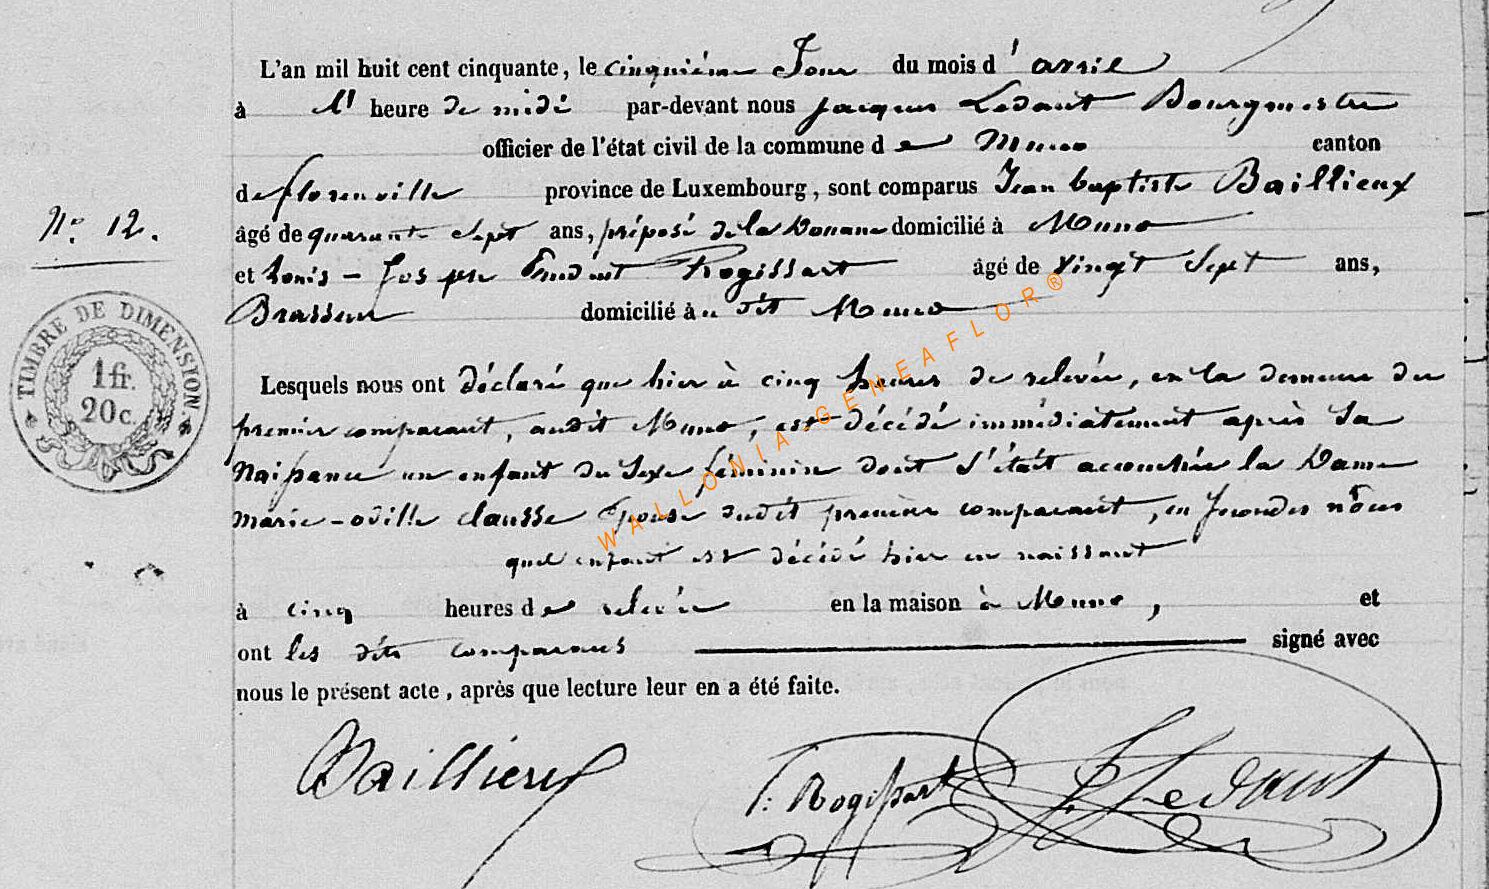 L'an mil huit cent cinquante, le cinquième Jour du mois d'avril
à l' heure de midi par-devant nous Jacques Ledant Bourgmestre
officier de l'état civil de la commune de Muno canton
de florenville province de Luxembourg, sont comparus Jean baptiste Baillieux
Nº 12.
âgé de quarante Sept ans, préposé de la Douane domicilié à Muno
et Louis - Joseph Rogissart âgé de vingt Sept ans,
Brasseur domicilié à dit Muno
TIMBRE DE DIMENSION
1 fr.
20 c.
Lesquels nous ont déclaré que hier à cinq heures de relevée, en la demeure du
premier comparant, audit Muno, est décédé immédiatement après Sa
Naissance un enfant du Sexe féminin dont S'était accouchée la Dame
Marie-odille clausse Epouse dudit premier comparant,
quel enfant est décédé hier en naissant
à cinq heures de relevée en la maison à Muno, et
ont les dits comparans signé avec
nous le présent acte, après que lecture leur en a été faite.
Baillieux Rogissart Ledant
WALLONIA-GENEAFLOR®